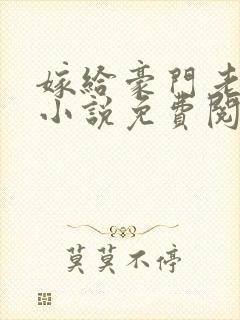 嫁給豪門老
小說免費閱
莫莫不停